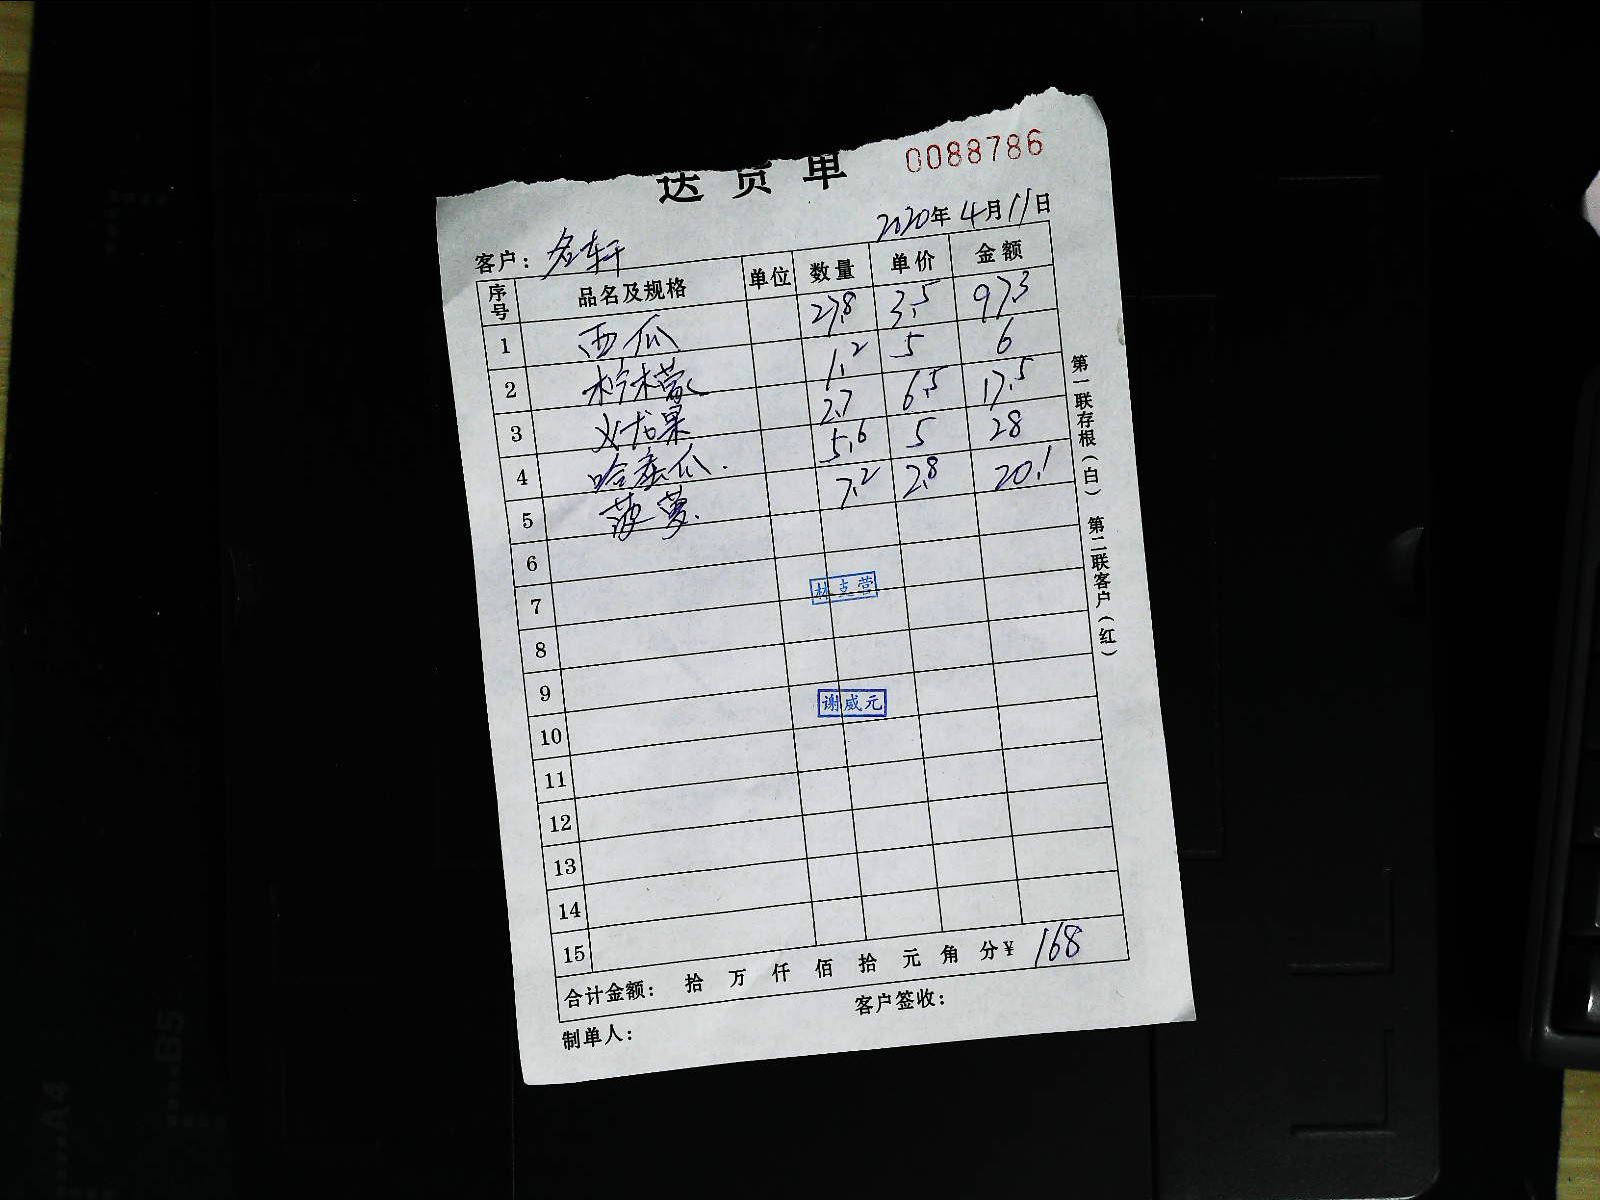 送货单 0088786
2020年4月11日
客户：名轩
序号 品名及规格 单位 数量 单价 金额
1 西瓜 27.8 3.5 97.3
2 柠檬 1.2 5 6
3 火龙果 2.7 6.5 17.5
4 哈蜜瓜. 5.6 5 28
5 菠萝. 7.2 2.8 20.1
6
7 林支营
8
9
10 谢威元
11
12
13
14
15
合计金额： 拾 万 仟 佰 拾 元 角 分¥ 168
制单人： 客户签收：
第一联存根（白） 第二联客户（红）
B5
A4